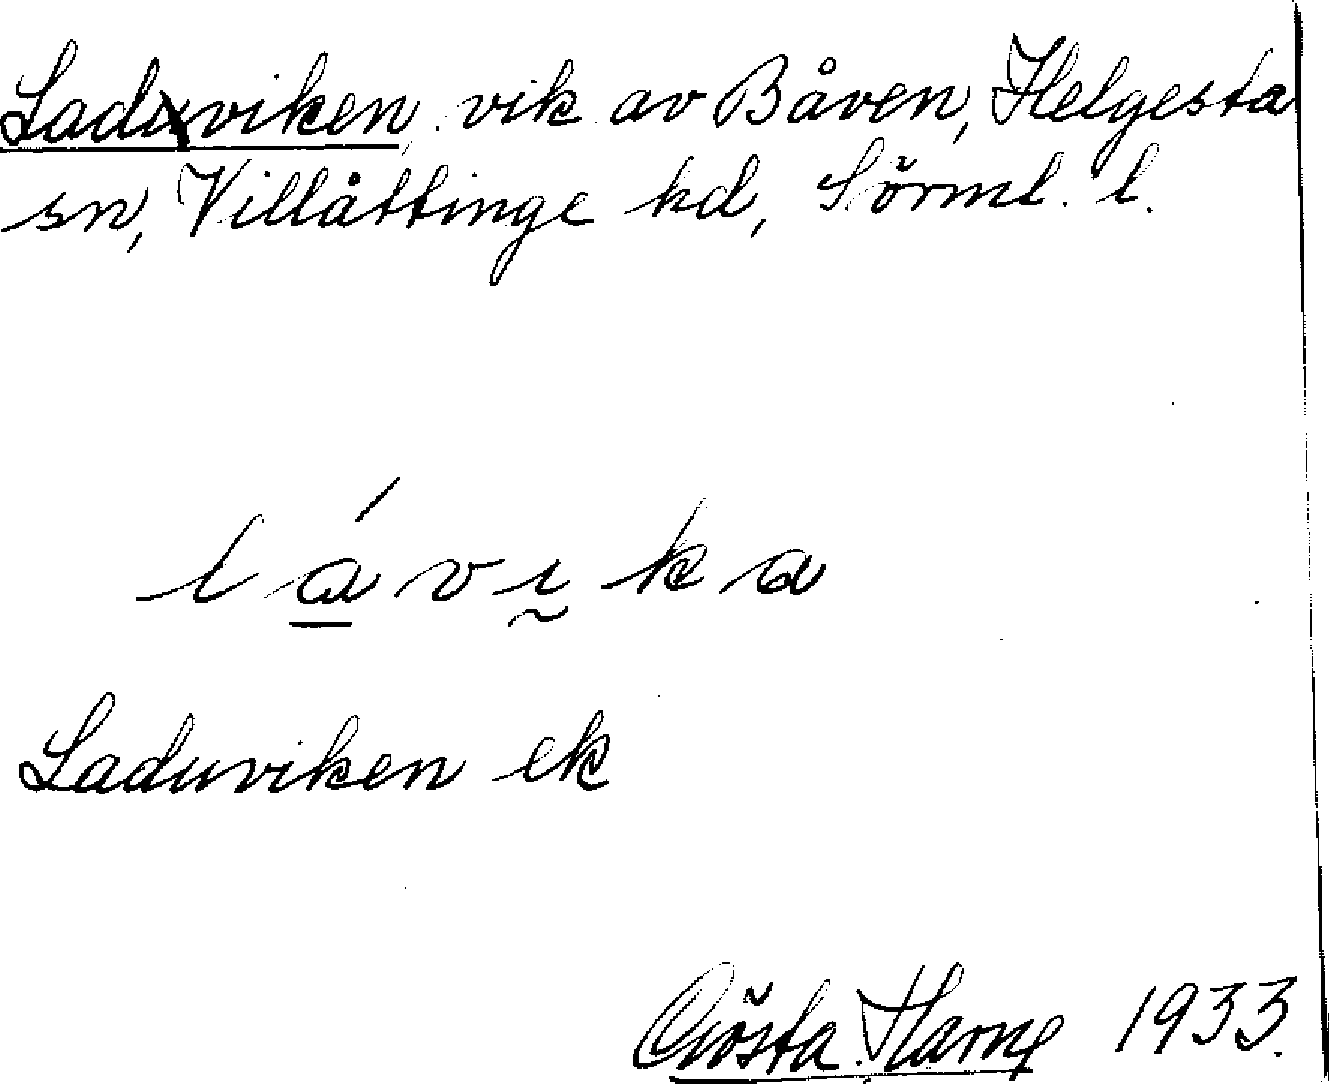 Laduviken, vik av Båven, Helgesta
sn, Villåttinge hd, Sörml. l.
lávika
Laduviken ek
Gösta Harne 1933.